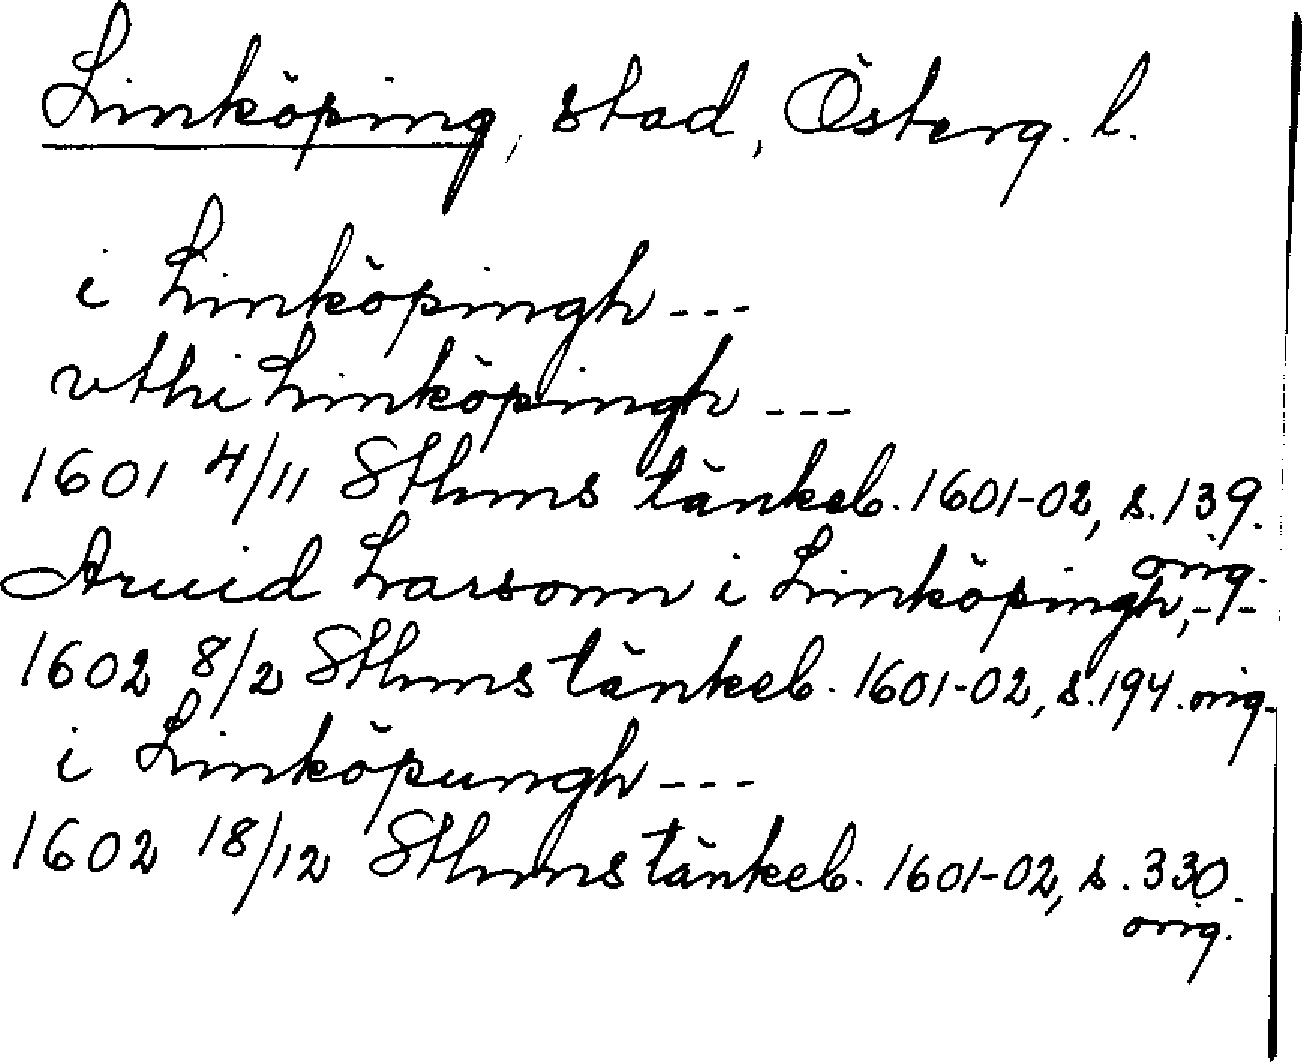 Linköping, stad, Österg. l.
i Linköpingh ---
vthi Linköpingh ---
1601 4/11 Sthms tänkeb. 1601-02, s. 139.
orig.
Aruid Larsonn i Linköpingh, -,-
1602 8/2 Sthms tänkeb. 1601-02, s. 194. orig.
i Linköpungh ---
1602 18/12 Sthms tänkeb. 1601-02, s. 330.
orig.